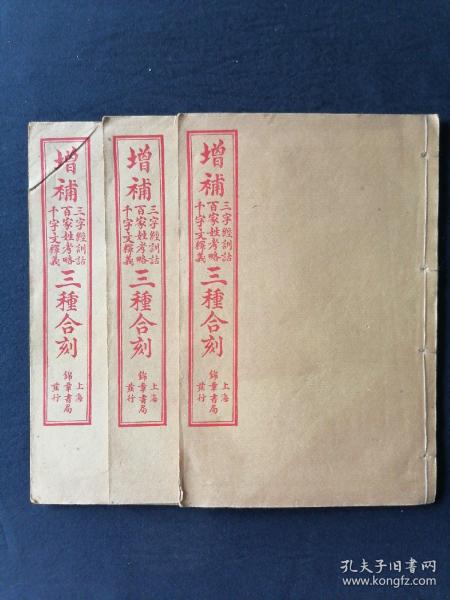 增補
三字經訓詁
百家姓考略
千字文釋義
三種合刻
上海
錦章書局
發行
增補
三字經訓詁
百家姓考略
千字文釋義
三種合刻
上海
錦章書局
發行
增補
三字經訓詁
百家姓考略
千字文釋義
三種合刻
上海
錦章書局
發行
孔夫子旧书网
www.kongfz.com